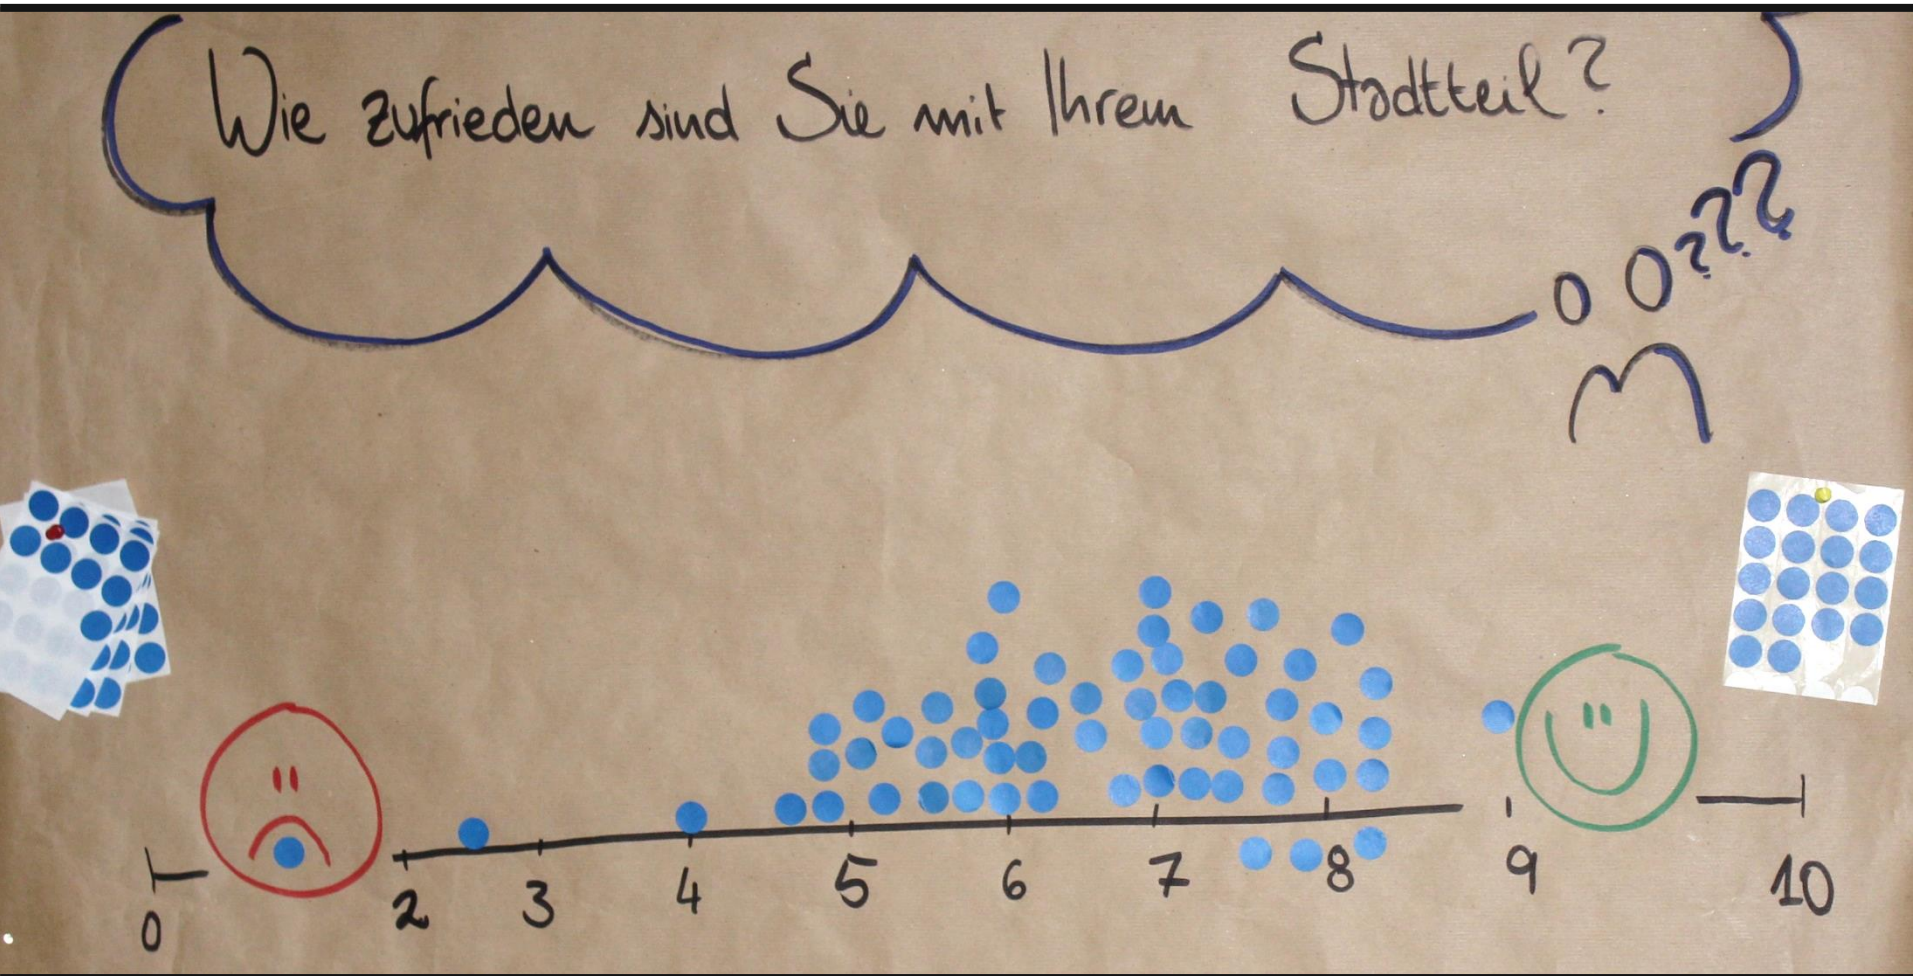 Wie zufrieden sind Sie mit Ihrem Stadtteil?
???
0 2 3 4 5 6 7 8 9 10